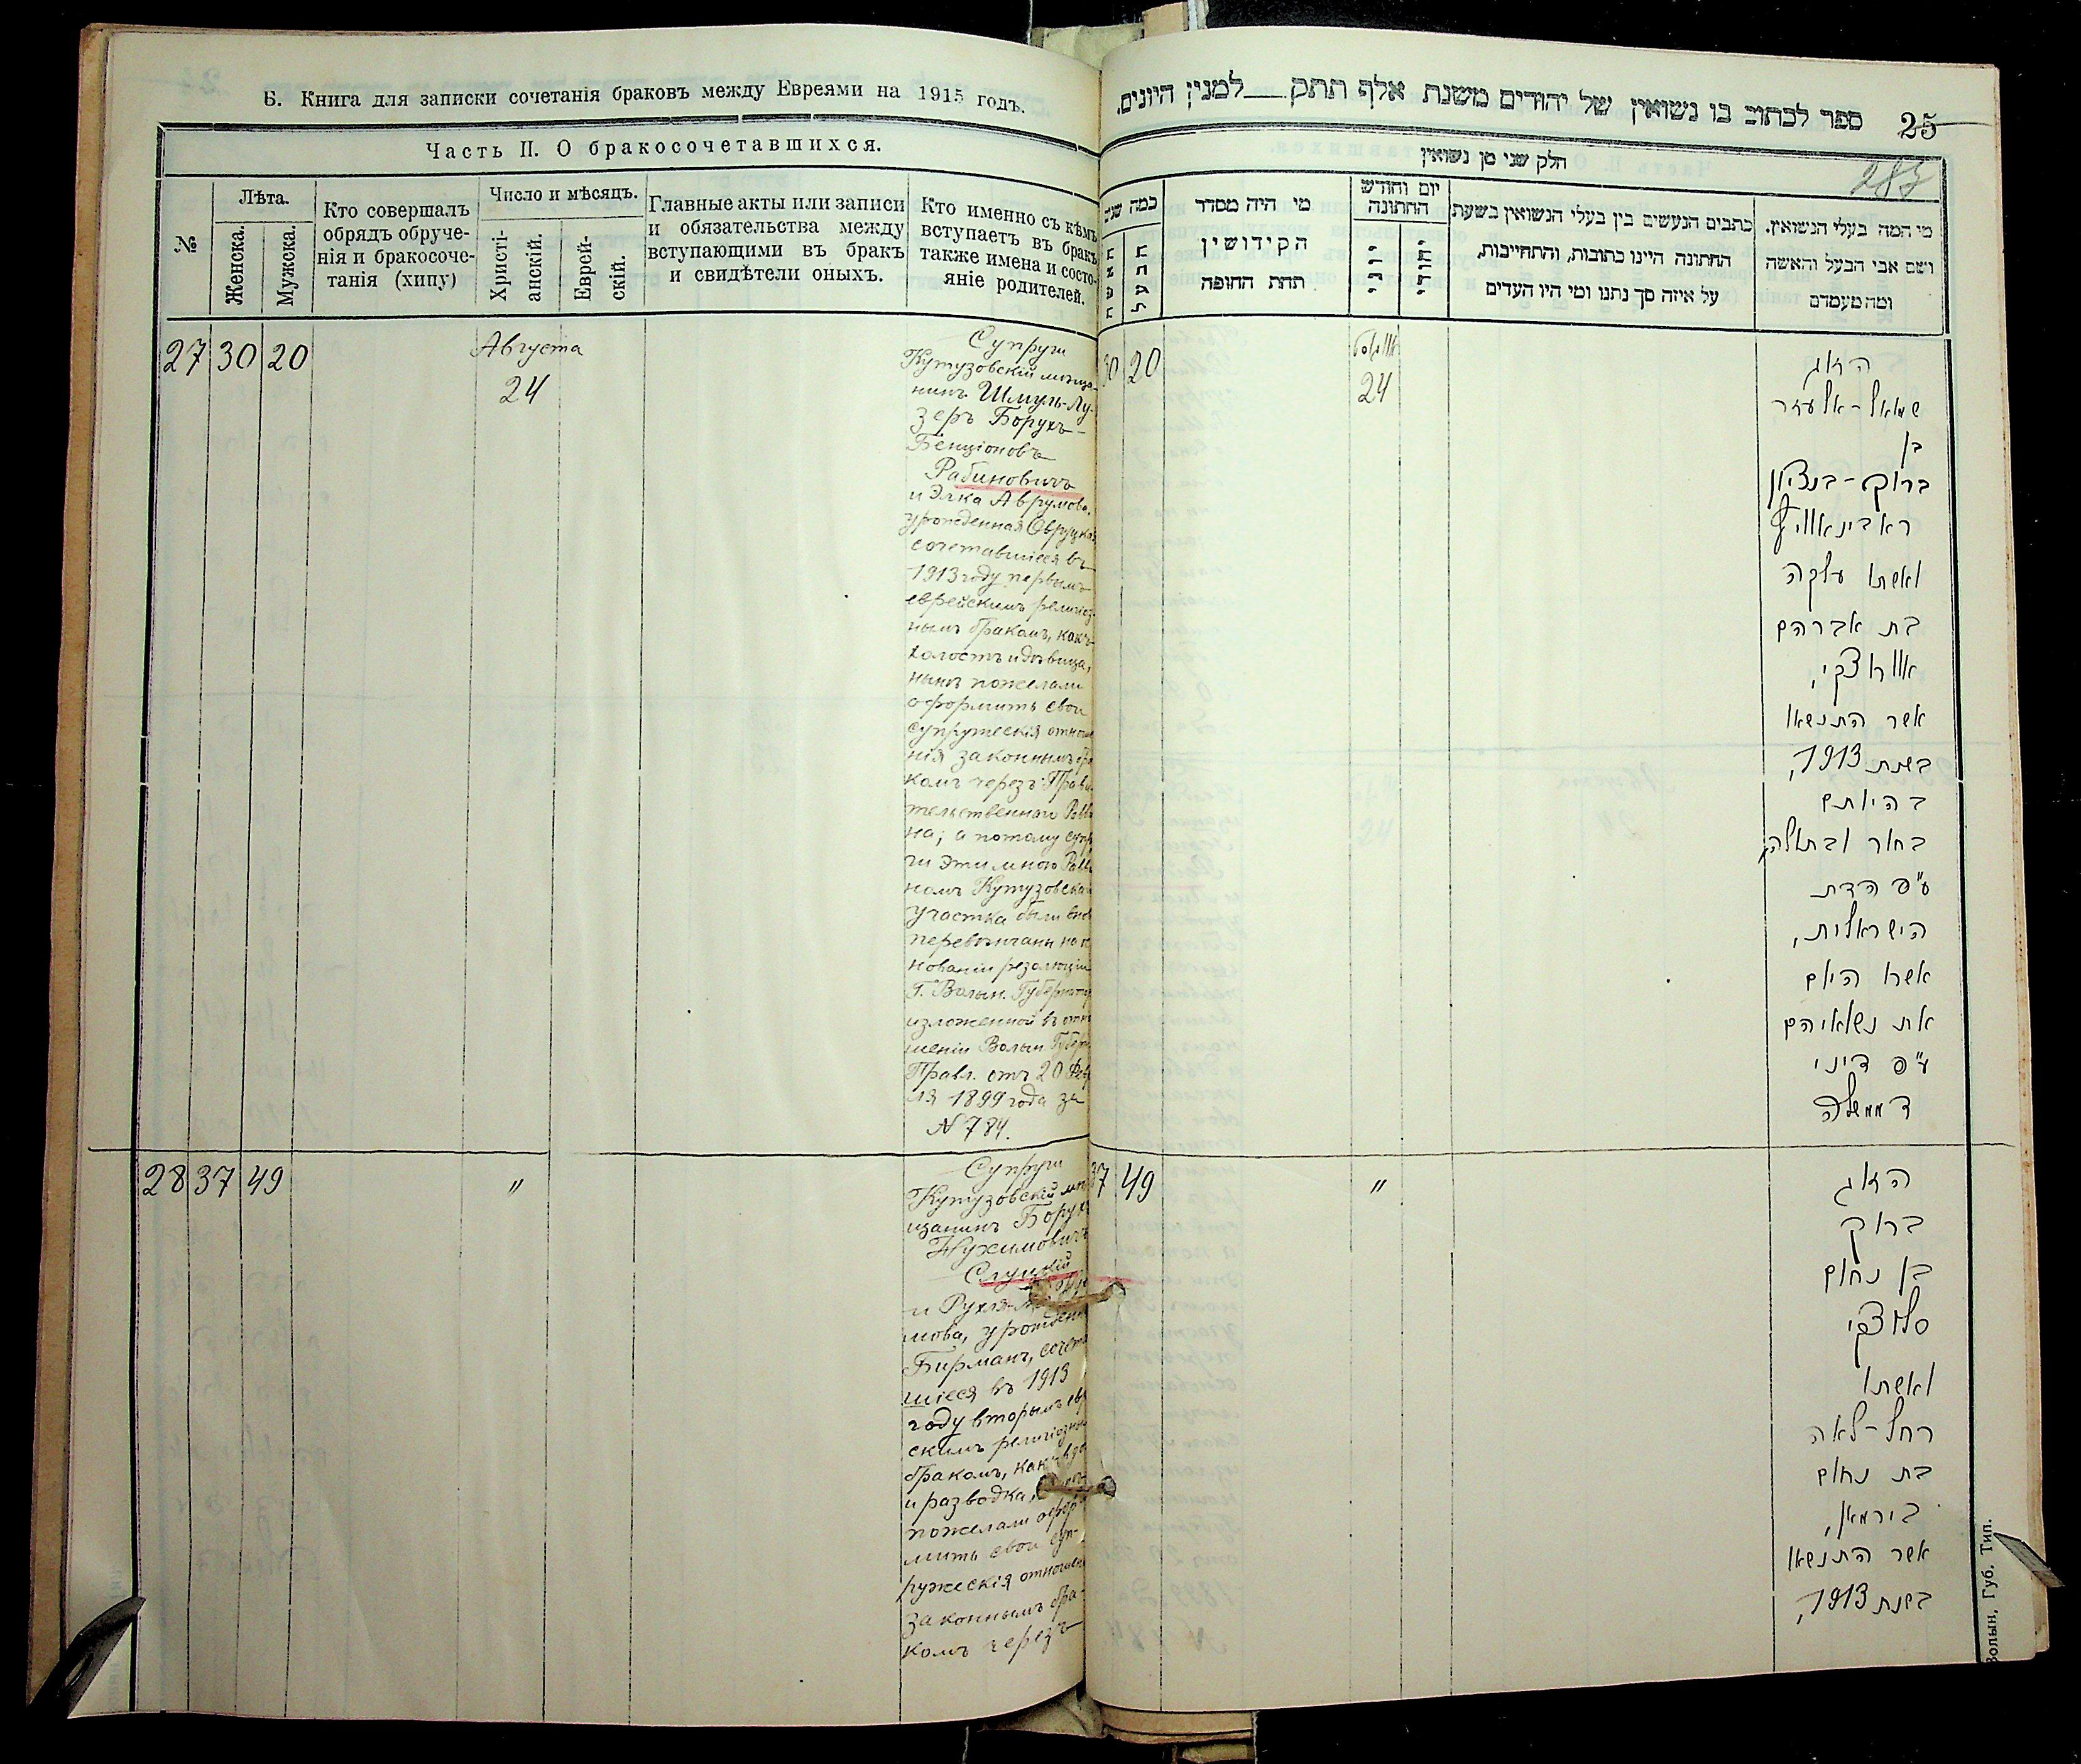 Б. Книга для записки сочетанія браковъ между Евреями на 1915 годъ.
Часть II. О бракосочетавшихся.
№
Лѣта.
Женска.
Мужска.
Кто совершалъ
обрядъ обруче-
нія и бракосоче-
танія (хипу)
Число и мѣсяцъ.
Христі-
анскій.
Еврей-
скій.
Главные акты или записи
и обязательства между
вступающими въ бракъ
и свидѣтели оныхъ.
Кто именно съ кѣмъ
вступаетъ въ бракъ
также имена и состо-
яніе родителей.
27 30 20
Августа
24
Супруги
Кутузовскій мѣща-
нинъ Шмуль-Лу-
зеръ Борухъ-
Бенціоновъ
Рабиновичъ
и Элка Аврумова,
урожденная Овруцкая
сочетавшіеся въ
1913 году первымъ
еврейскимъ религіоз-
нымъ бракомъ, какъ
холостъ и дѣвица,
нынѣ пожелали
оформить свои
супружескія отноше
нія законнымъ бра
комъ черезъ Прави
тельственнаго Равви
на; а потому супру
ги эти мною Равви
номъ Кутузовскаго
участка были внов
перевѣнчаны на ос
нованіи резолюціи
Г. Волын. Губернатор
изложенной въ отно
шеніи Волын. Губерн
Правл. отъ 20 Февр
ля 1899 года за
N 784.
28 37 49
"
Супруги
Кутузовскій мѣ
щанинъ Борухъ
Нухимовичъ
Слуцкій
и Рухля-
мова, урожденн
Бирманъ, сочета
шіеся въ 1913
году вторымъ евр
скимъ религіозны
бракомъ, какъ
и разводка,
пожелали офор
мить свои суп-
ружескія отношен
законнымъ бра-
комъ черезъ
ספר לכתוב בו נשואין של יהודים משנת אלף תתק ___ למנין היונים.
25
283
חלק שני מן נשואין
כמה שנים
האשה
הבעל
מי היה מסדר
הקידושין
תחת החופה
יום וחודש
החתונה
כתבים הנעשים בין בעלי הנשואין בשעת
החתונה היינו כתובות, והתחייבות,
על איזה סך נתנו ומי היו העדים
מי המה בעלי הנשואין.
ושם אבי הבעל והאשה
ומה מעמדם
30 20
אווגוסט
24
הזוג
שמואל-אלעזר
בן
ברוך-בנציון
ראבינאוויץ
ואשתו עלקה
בת אברהם
אוורוצקי,
אשר התנשאו
בשנת 1913,
בהיותם
בחור ובתולה,
ע"פ הדת
הישראלית,
אשרו היום
את נשואיהם
ע"פ דיני
דממשלה
37 49
"
הזוג
ברוך
בן נחום
סלוצקי
ואשתו
רחל-לאה
בת נחום
בירמאן,
אשר התנשאו
בשנת 1913,
Волын, Губ. Тип.